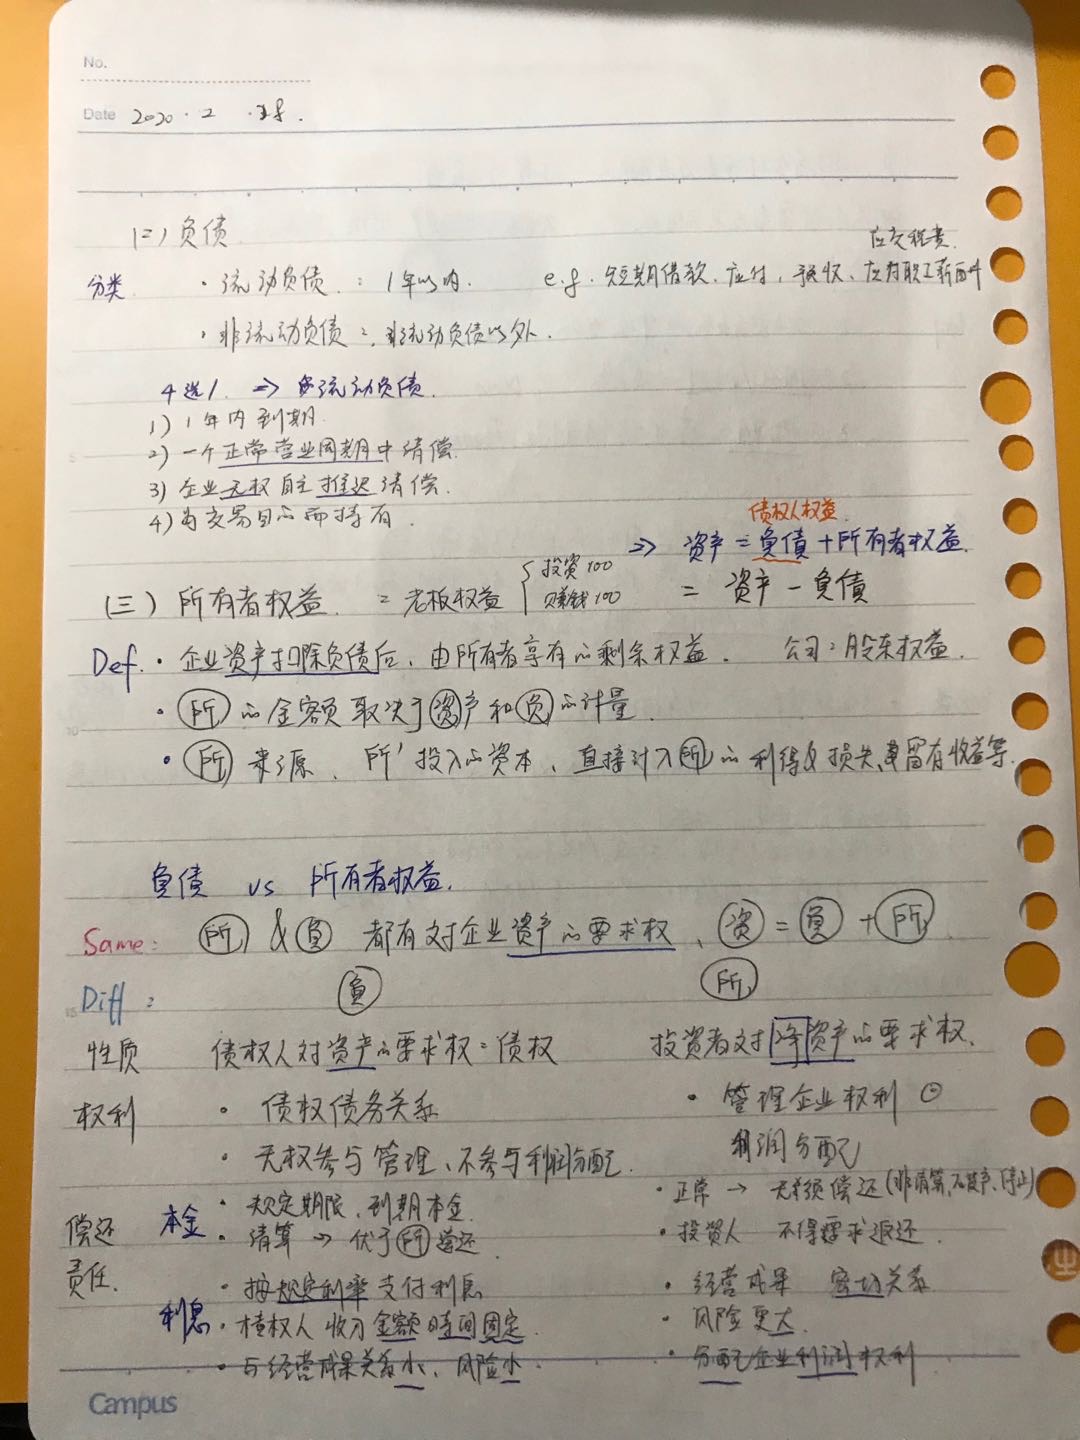 No.
Date 2020 · 2 ·
(二) 负债
应交税费.
分类 · 流动负债 : 1年以内. e.g. 短期借款、应付、预收、应付职工薪酬
· 非流动负债 = 非流动负债以外.
4选1. => 流动负债.
1) 1年内到期.
2) 一个正常营业周期中清偿.
3) 企业无权自主推迟清偿.
4) 为交易目的而持有.
债权人权益.
=> 资产 = 负债 + 所有者权益.
(三) 所有者权益. = 老板权益 { 投资100 赚钱100 = 资产 - 负债
Def. · 企业资产扣除负债后, 由所有者享有的剩余权益. 公司: 股东权益.
· 所 的金额取决于资产和负的计量.
· 所 来源、所' 投入的资本、直接计入所的利得&损失、留存收益等.
负债 vs 所有者权益.
Same: 所 & 负 都有对企业资产的要求权、资 = 负 + 所
Diff: 负 所
性质 债权人对资产的要求权 = 债权 投资者对净资产的要求权.
权利 · 债权债务关系 · 管理企业权利
· 无权参与管理、不参与利润分配. 利润分配
偿还责任. 本金 · 规定期限、到期本金 · 正常 → 无须偿还 (非清算、破产、停止)
· 清算 → 优于所偿还 · 投资人 不得要求返还.
· 按规定利率支付利息 · 经营成果 密切关系
利息 · 债权人 收入金额时间固定. · 风险更大.
· 与经营成果关系小、风险小. · 分配企业利润权利
Campus